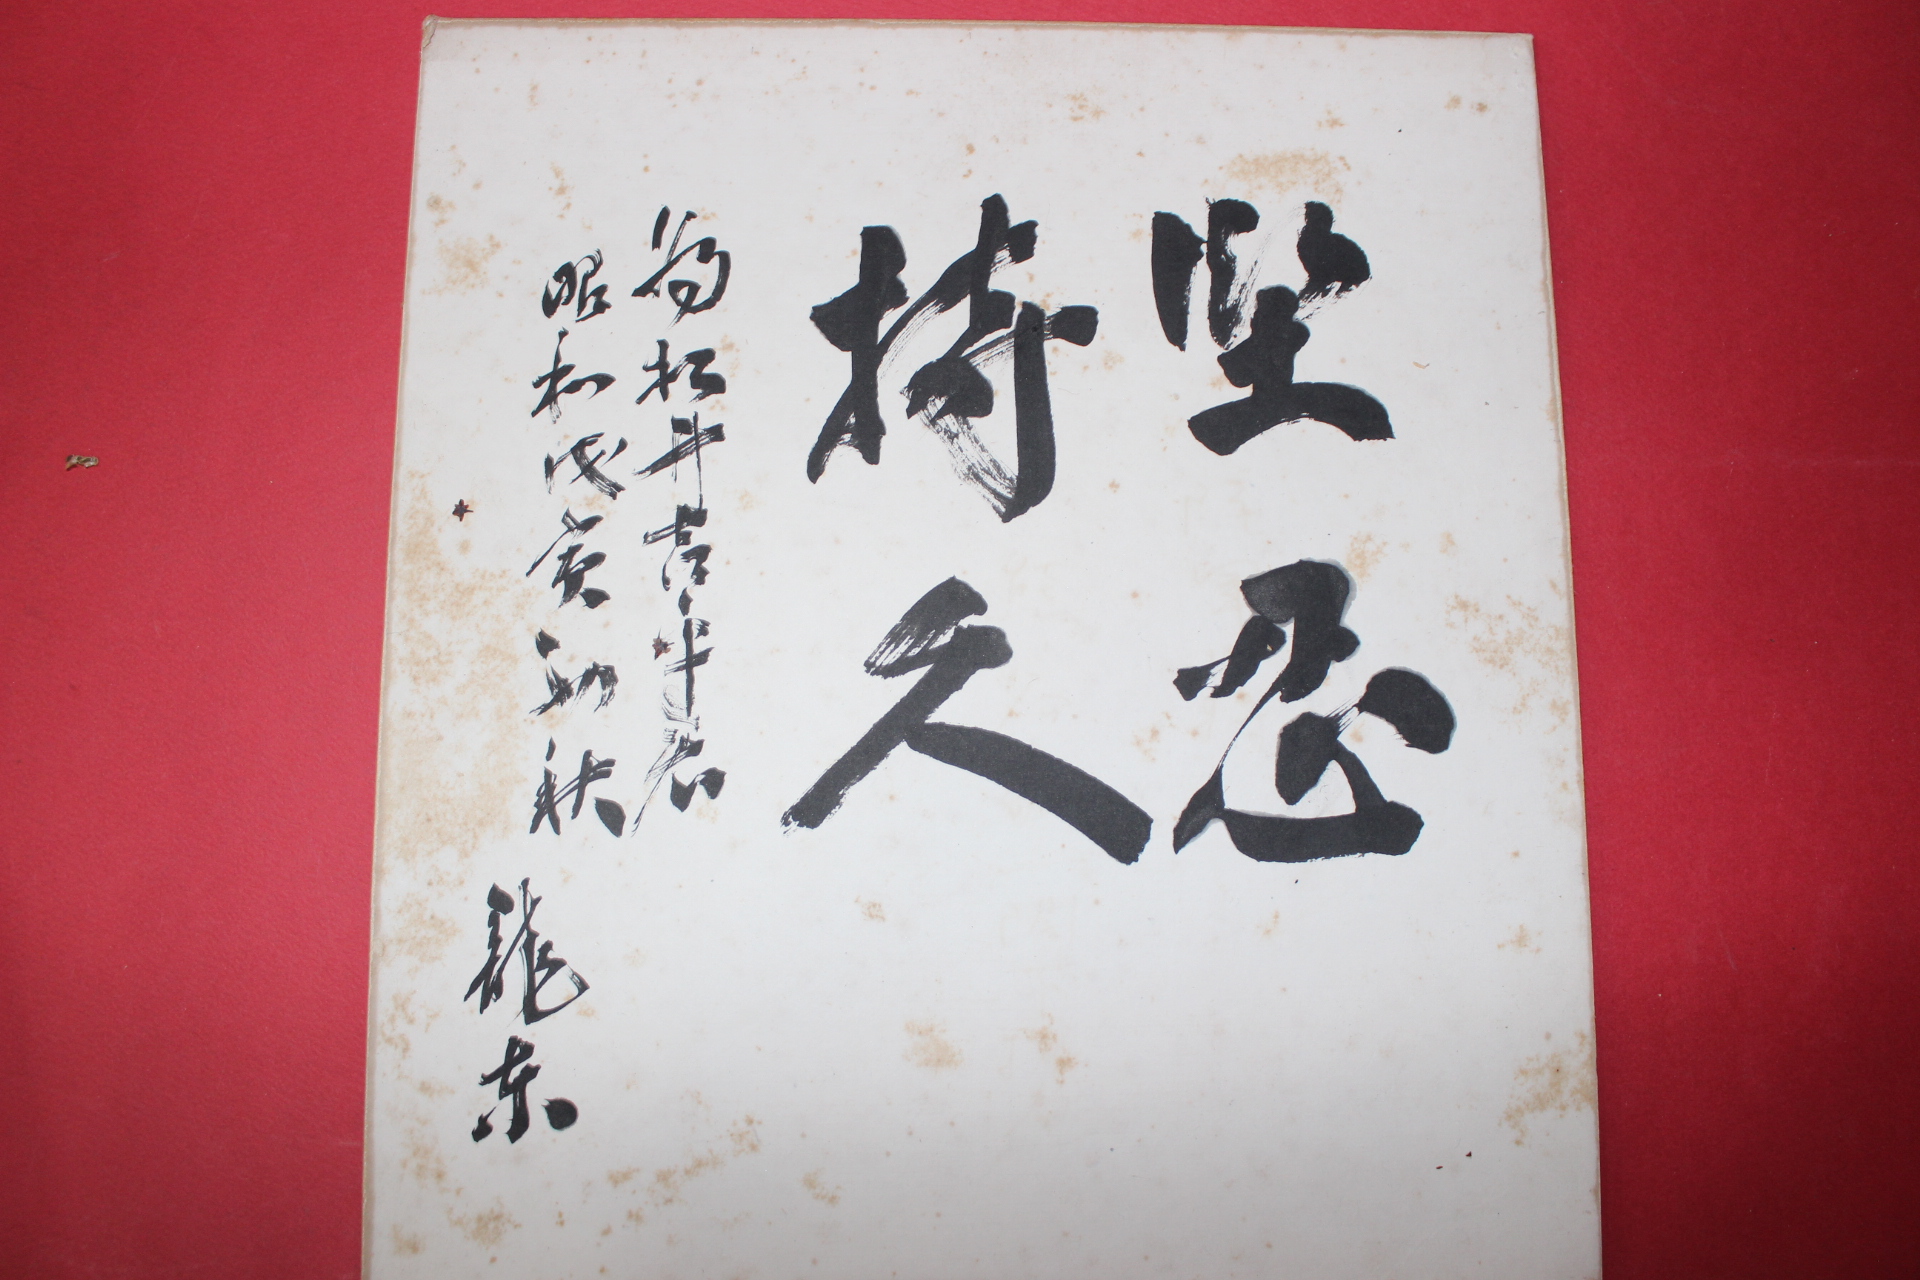 堅忍
持久
為松井吉平君
昭和戊寅初秋
龍東